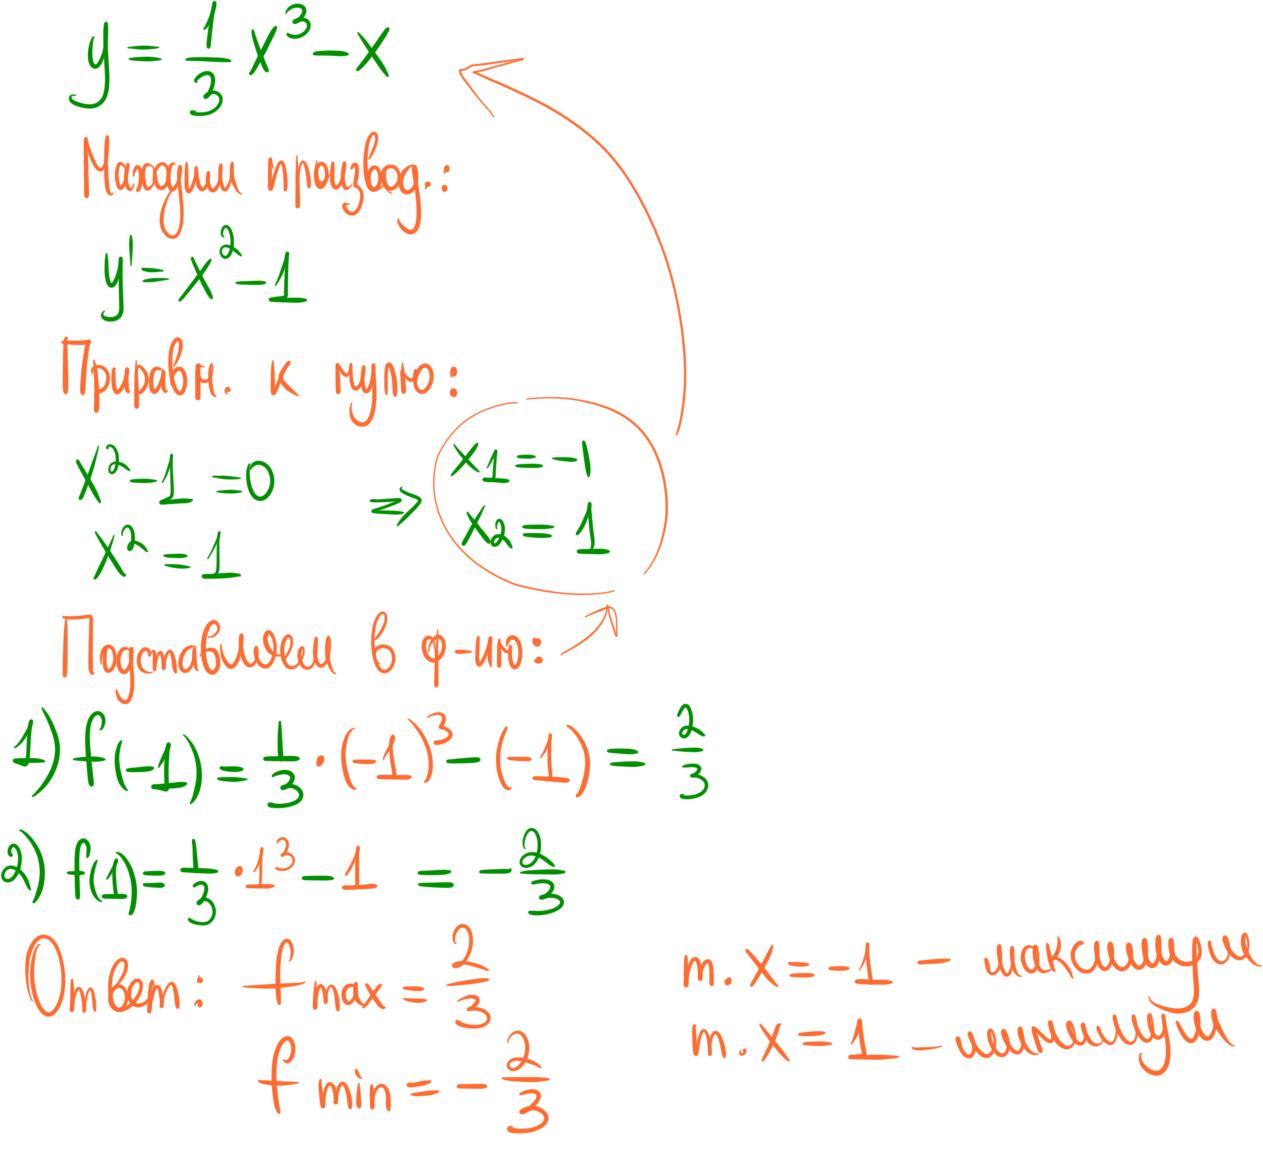 y = 1/3 x³ - x
Находим производ.:
y' = x² - 1
Приравн. к нулю:
x² - 1 = 0 ⇒ x₁ = -1
x² = 1 x₂ = 1
Подставляем в ф-ию:
1) f(-1) = 1/3 · (-1)³ - (-1) = 2/3
2) f(1) = 1/3 · 1³ - 1 = -2/3
Ответ: f max = 2/3 т. x = -1 - максимум
f min = -2/3 т. x = 1 - минимум